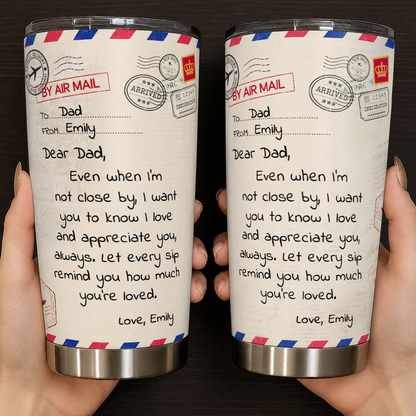 BY AIR MAIL
ARRIVED
TO Dad
FROM Emily
Dear Dad,
Even when I'm
not close by, I want
you to know I love
and appreciate you,
always. Let every sip
remind you how much
you're loved.
Love, Emily
BY AIR MAIL
ARRIVED
TO Dad
FROM Emily
Dear Dad,
Even when I'm
not close by, I want
you to know I love
and appreciate you,
always. Let every sip
remind you how much
you're loved.
Love, Emily